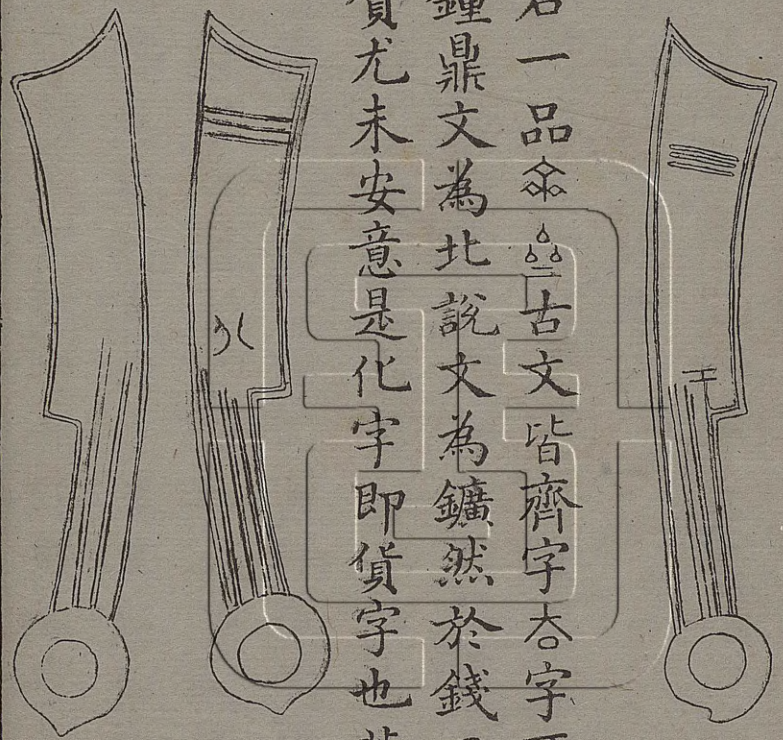 一品古文皆齊字夻字
鍾鼎文為北說文為鑛然於錢
尤未安意是化字即貨字也